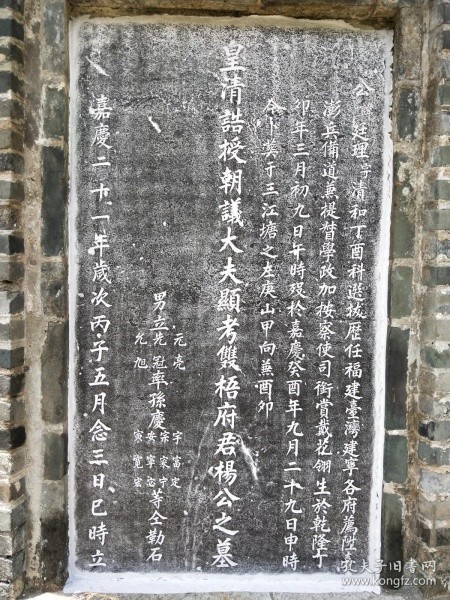 公諱廷理字清和丁酉科選拔歷任福建臺灣建寧各府薦陞臺
澎兵備道蕪提督學政加按察使司銜賞戴花翎生於乾隆丁
卯年三月初九日午時歿於嘉慶癸酉年九月二十九日申時
今卜葬于三江塘之左庚山甲向蕪酉卯
皇清誥授朝議大夫顯考雙梧府君楊公之墓
男立 元亮 先冠 允旭 率孫慶 宇富定 宗家守 安寧宓 寅寬宏 等仝勒石
嘉慶二十一年歲次丙子五月念三日巳時立
孔夫子旧书网
www.kongfz.com